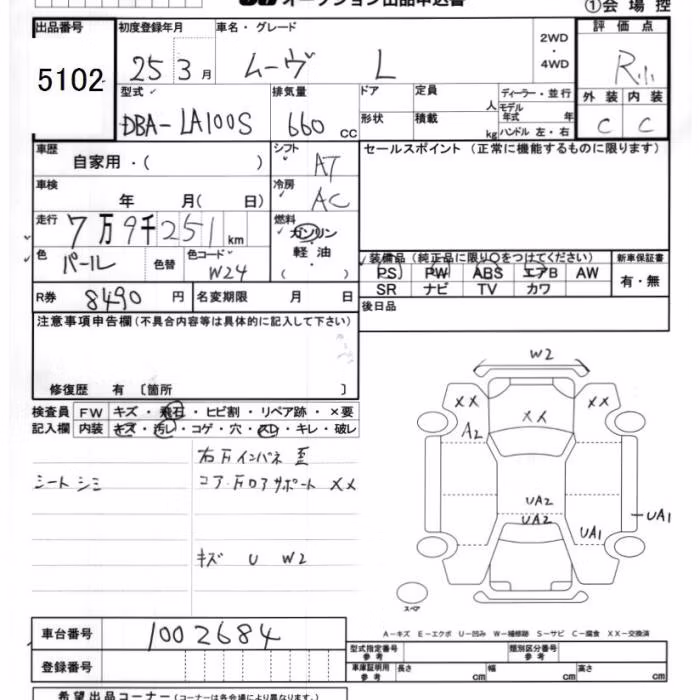 オークション出品申込書 ①会場控
出品番号 初度登録年月 車名・グレード 2WD・4WD 評価点
5102 25 3月 ムーヴ L R小
型式 排気量 ドア 定員 人 ディーラー・並行 外装 内装
DBA-LA100S 660 cc 形状 積載 kg モデル年式 年 C C
ハンドル 左・右
車歴 自家用・( ) シフト AT セールスポイント (正常に機能するものに限ります)
車検 年 月( 日) 冷房 AC
走行 7万9千251km 燃料 ガソリン・軽油・( )
色 パール 色替 色コード W24 装備品 (純正品に限り○をつけてください) 新車保証書
PS PW ABS エアB AW 有・無
SR ナビ TV カワ
R券 8490円 名変期限 月 日 後日品
注意事項申告欄 (不具合内容等は具体的に記入して下さい)
修復歴 有 〔箇所 〕
検査員 FW キズ・飛石・ヒビ割・リペア跡・×要
記入欄 内装 キズ・汚レ・コゲ・穴・スレ・キレ・破レ
シートシミ
コア.
サポート XX
キズ U W2
W2
XX XX
XX
A2
UA2
UA2
UA1 UA1
スペア
A-キズ E-エクボ U-凹み W-補修跡 S-サビ C-腐食 XX-交換済
車台番号 1002684 型式指定番号 参考 類別区分番号 参考
登録番号 車庫証明用 参考 長さ cm 幅 cm 高さ cm
希望出品コーナー (コーナーは各会場により異なります。)